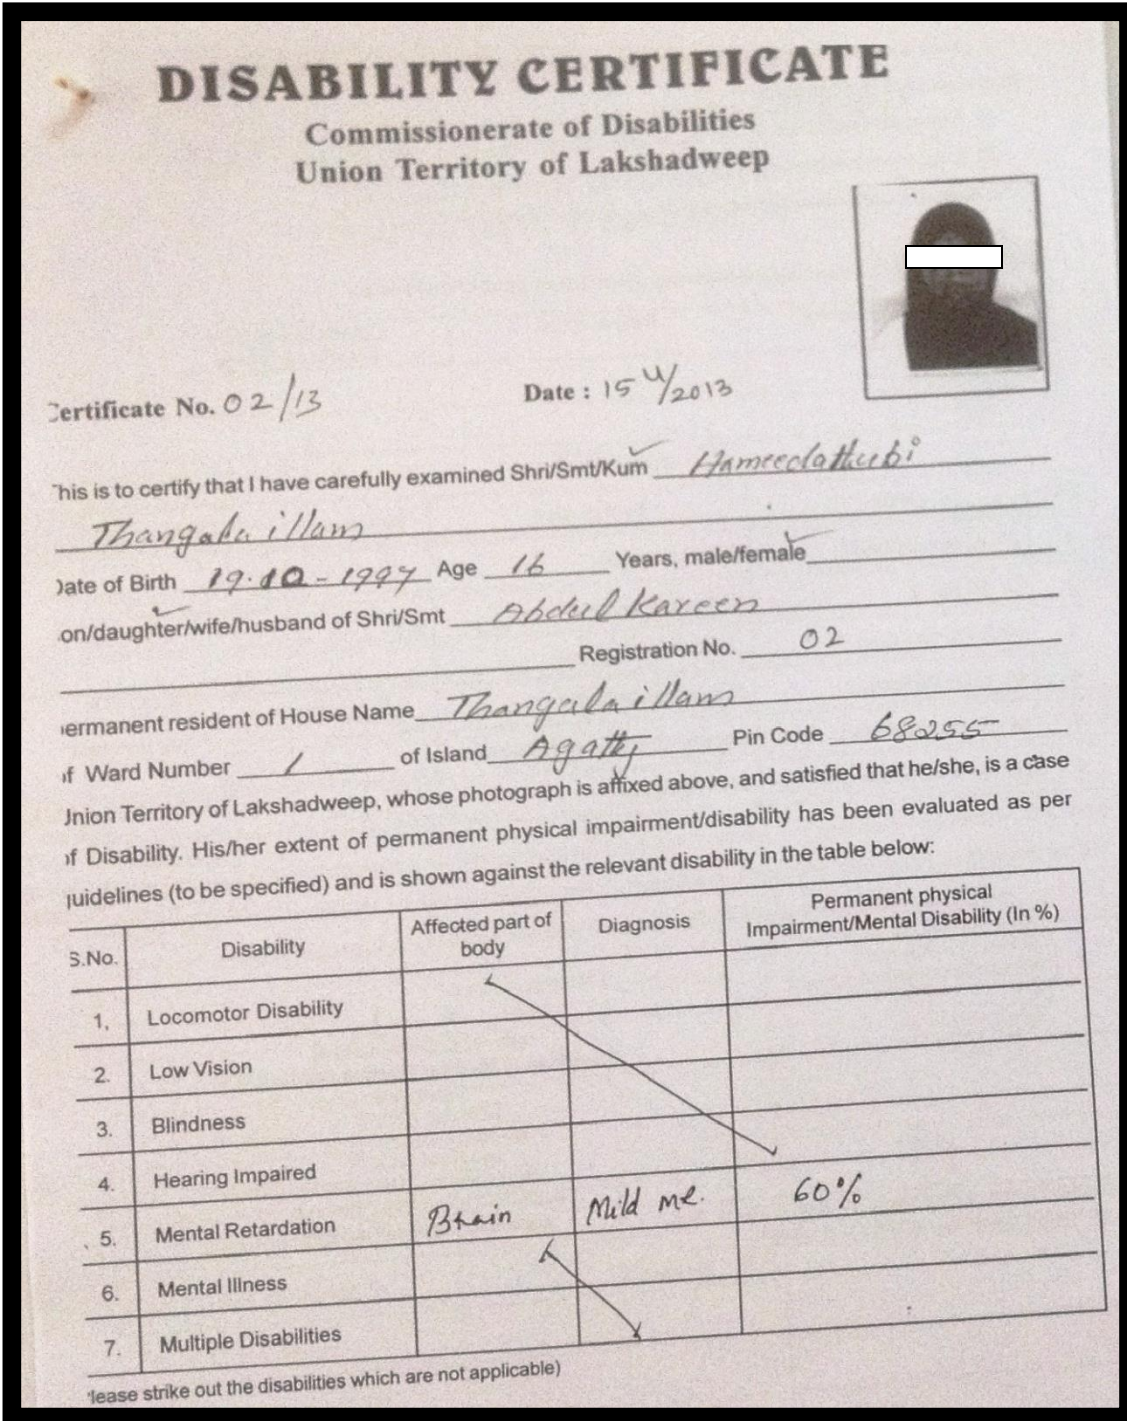 DISABILITY CERTIFICATE
Commissionerate of Disabilities
Union Territory of Lakshadweep
Certificate No. 02/13 Date : 15 4/2013
This is to certify that I have carefully examined Shri/Smt/Kum Hameedathubi
Thangalaillam
Date of Birth 19.10-1997 Age 16 Years, male/female
on/daughter/wife/husband of Shri/Smt Abdul Kareem
Registration No. 02
ermanent resident of House Name Thangalaillam
of Ward Number 1 of Island Agatty Pin Code 68255
Union Territory of Lakshadweep, whose photograph is affixed above, and satisfied that he/she, is a case
of Disability. His/her extent of permanent physical impairment/disability has been evaluated as per
guidelines (to be specified) and is shown against the relevant disability in the table below:
S.No. Disability Affected part of body Diagnosis Permanent physical Impairment/Mental Disability (In %)
1, Locomotor Disability
2. Low Vision
3. Blindness
4. Hearing Impaired
5. Mental Retardation Brain Mild me. 60%
6. Mental Illness
7. Multiple Disabilities
lease strike out the disabilities which are not applicable)